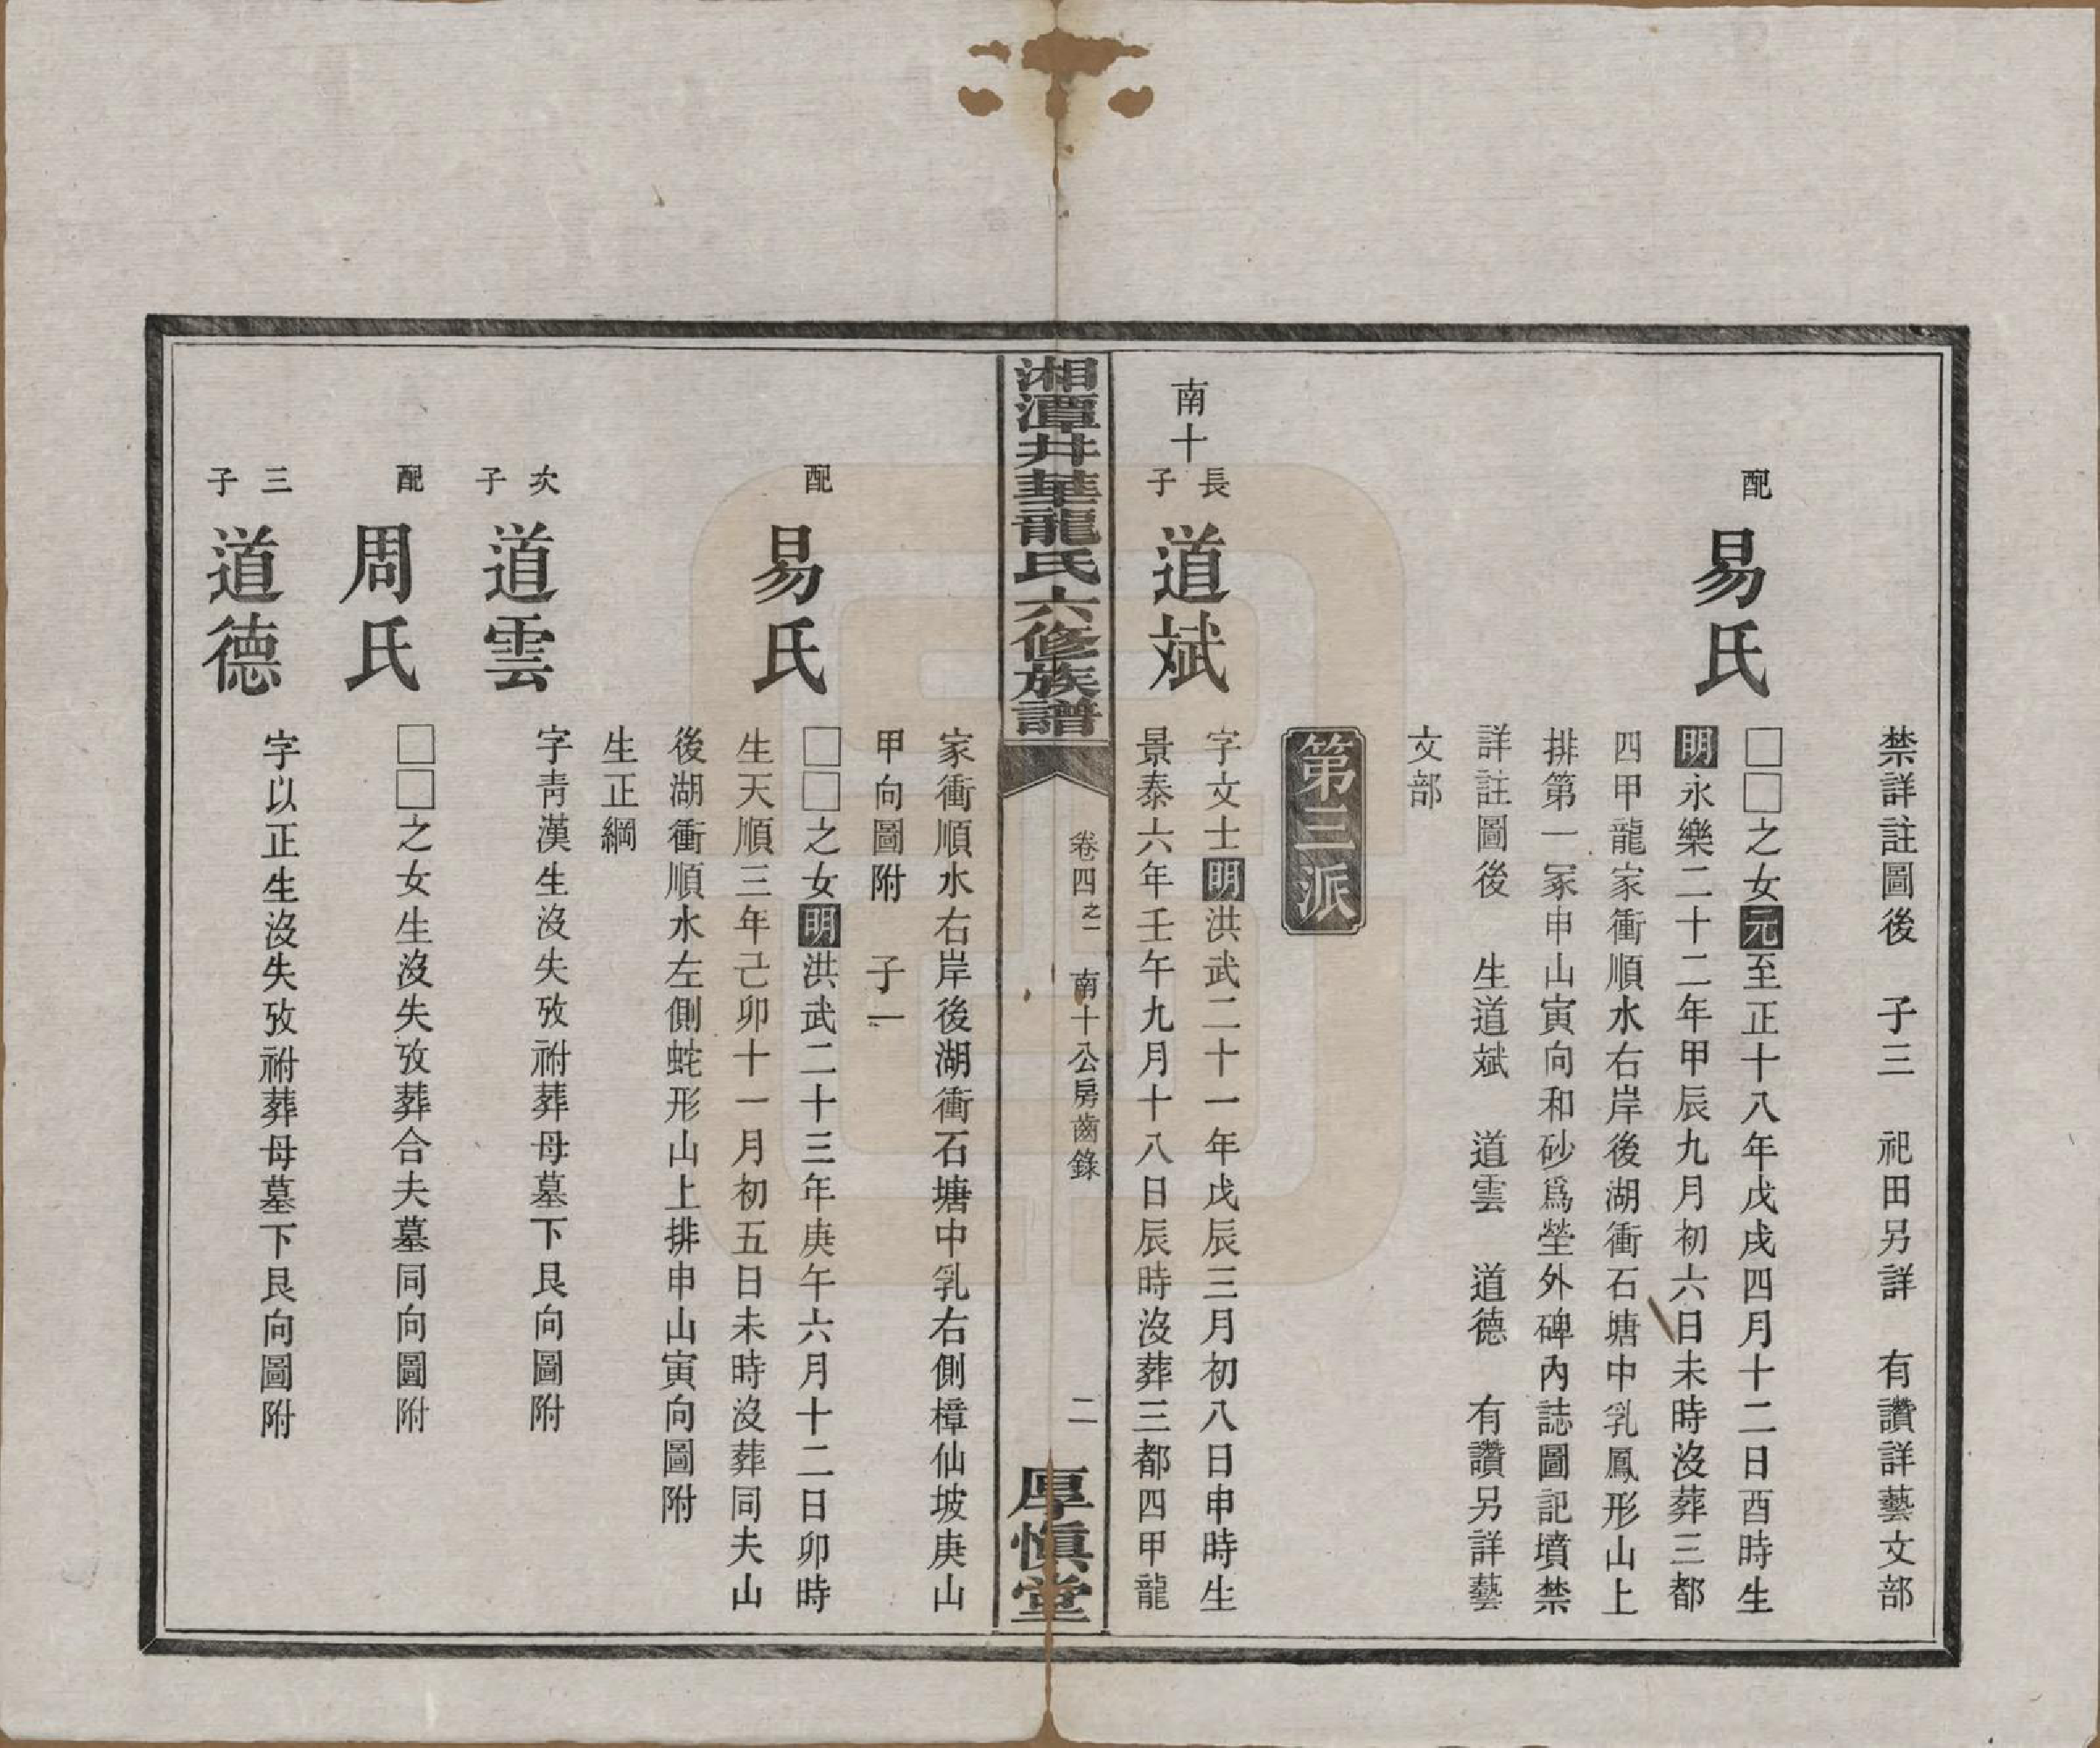 禁詳註圖後　子三　祀田另詳　有讚詳藝文部
配　易氏　□□之女元至正十八年戊戌四月十二日酉時生
明永樂二十二年甲辰九月初六日未時沒葬三都
四甲龍家衝順水右岸後湖衝石塘中乳鳳形山上
排第一冢申山寅向和砂爲塋外碑內誌圖記墳禁
詳註圖後　生道斌　道雲　道德　有讚另詳藝
文部
第三派
南十長子　道斌　字文士明洪武二十一年戊辰三月初八日申時生
景泰六年壬午九月十八日辰時沒葬三都四甲龍
湘潭井華龍氏六修族譜　卷四之一　南十公房齒錄　二　厚慎堂
家衝順水右岸後湖衝石塘中乳右側樟仙坡庚山
甲向圖附　子一
配　易氏　□□之女明洪武二十三年庚午六月十二日卯時
生天順三年己卯十一月初五日未時沒葬同夫山
後湖衝順水左側蛇形山上排申山寅向圖附
生正綱
次子　道雲　字靑漢生沒失攷祔葬母墓下艮向圖附
配　周氏　□□之女生沒失攷葬合夫墓同向圖附
三子　道德　字以正生沒失攷祔葬母墓下艮向圖附